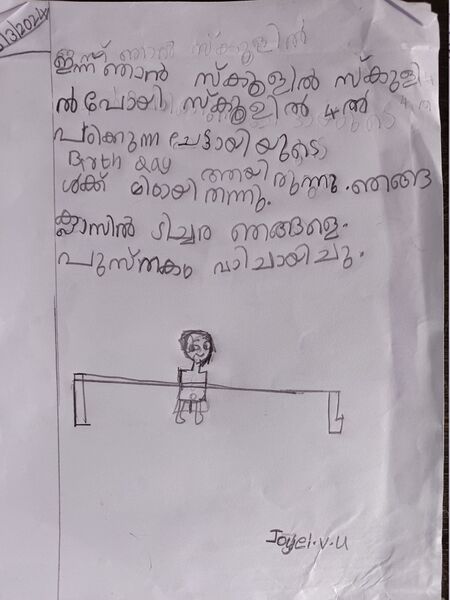 1/3/2024
ഇന്ന് ഞാൻ സ്കൂളിൽ
ഇന്ന് ഞാൻ സ്കൂളിൽ സ്കൂളി
ൽപോയി സ്കൂളിൽ 4ൽ
പഠിക്കുന്ന ചേട്ടായിയുടെ
Birth day ത്തായിരുന്നു. ഞങ്ങ
ൾക്ക് മിഠായി തന്നു.
ക്ലാസിൽ ടീച്ചര ഞങ്ങളെ.
പുസ്തകം വായിച്ചു.
Joyel.v.u